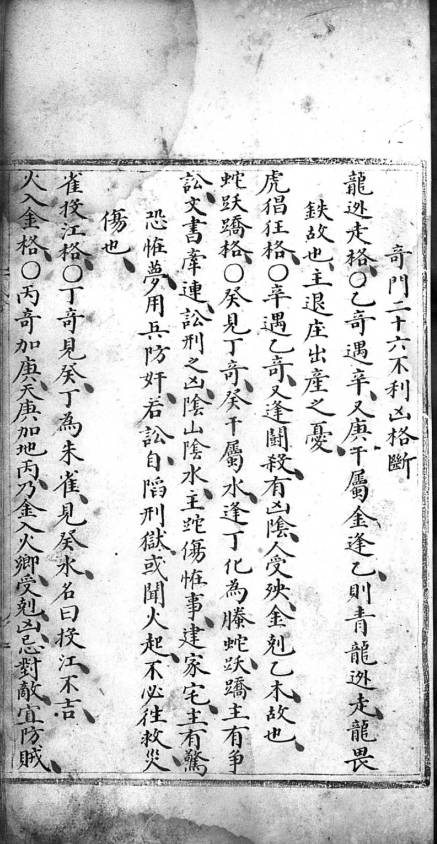 奇門二十六不利凶格斷
龍迯走格〇乙奇遇辛又庚干屬金逢乙則青龍迯走龍畏
鈇故也主退庄出產之憂
虎猖狂格〇辛遇乙奇又逢鬪殺有凶陰人受殃金剋乙木故也
蛇跃蹻格〇癸見丁奇癸干屬水逢丁化為螣蛇跃蹻主有争
訟文書牽連訟刑之凶陰山陰水主跎傷恠事建家宅主有驚
恐恠夢用兵防奸若訟自陷刑獄或聞火起不必徃救災
傷也
雀投江格〇丁奇見癸丁為朱雀見癸水名曰投江不吉
火入金格〇丙奇加庚天庚加地丙乃金入火鄉受剋凶忌對敵宜防賊